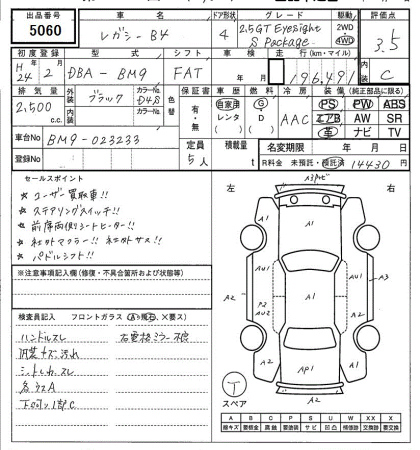 出品番号 車名 ドア形状 グレード 駆動 評価点
5060 レガシー B4 4 2.5GT Eyesight S Package 2WD 4WD 3.5
初度登録 型式 シフト 車検 走行(km・マイル) 内装
H24 2 DBA-BM9 FAT 年 月 196,491 C
排気量 外装 カラーNo. 色替 保証書 車歴 燃料 冷房 装備(純正部品に限る)
2,500 c.c. ブラック カラーNo. D4S 有・無 自家用 レンタ G D AAC PS PW ABS
エアB AW SR
革 ナビ TV
車台No BM9-023233 定員 5人 積載量 t 名変期限 年 月 日
登録No R料金 未預託・預託済 14430 円
セールスポイント
★ ユーザー買取車!!
★ ステアリングスイッチ!!
★ 前席両側シートヒーター!!
★ 社外マフラー!! 社外サス!!
★ パドルシフト!!
※注意事項記入欄(修復・不具合箇所および状態等)
検査員記入 フロントガラス (A>飛石、×要ス)
ハンドルスレ 右電格ミラー不良
内装キズ汚れ
シートスレ
各ウスA
下回り1部C
左 右
A1
A1 A1
A2 AU1 A1 AU1 A3
P2 AU2
A2 A1 A2
AP1
A2
T
スペア
A B C P S U W X XX
線キズ 要板金 腐蝕 要塗装 サビ 凹凸 補修跡 要交換 交換跡